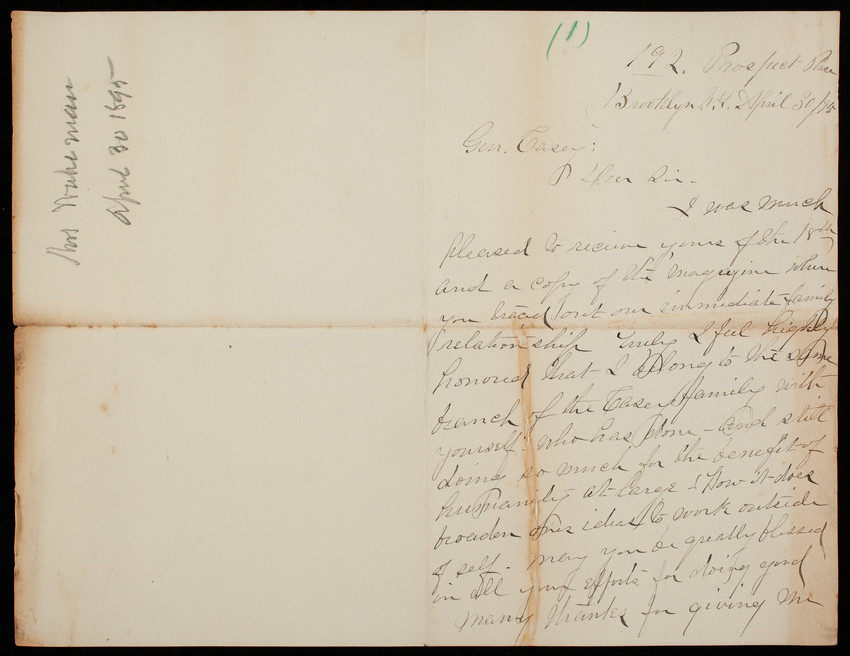 Mrs Wakeman
April 30 1895
(1)
192. Prospect Place
Brooklyn N.Y. April 30/95
Gen. Casey:
Dear Sir-
I was much
pleased to receive yours of the 18th
and a copy of the magazine where
you trace out our immediate family
relationship Truly I feel highly
honored that I belong to the same
branch of the Casey family with
yourself who has done - and still
doing so much for the benefit of
humanity at large - How it does
broaden ones ideas to work outside
of self. May you be greatly blessed
in all your efforts for doing good
Many thanks for giving me